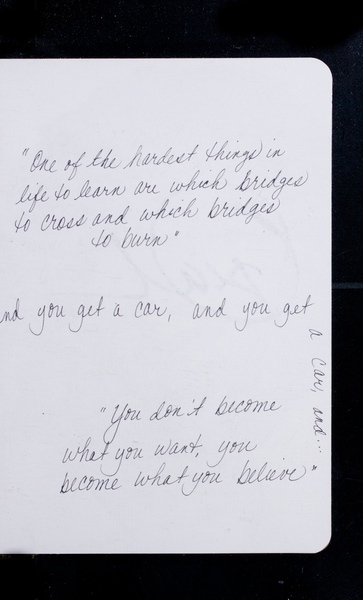 "One of the hardest things in
life to learn are which bridges
to cross and which bridges
to burn"
nd you get a car, and you get
a car, and...
"You don't become
what you want, you
become what you believe"